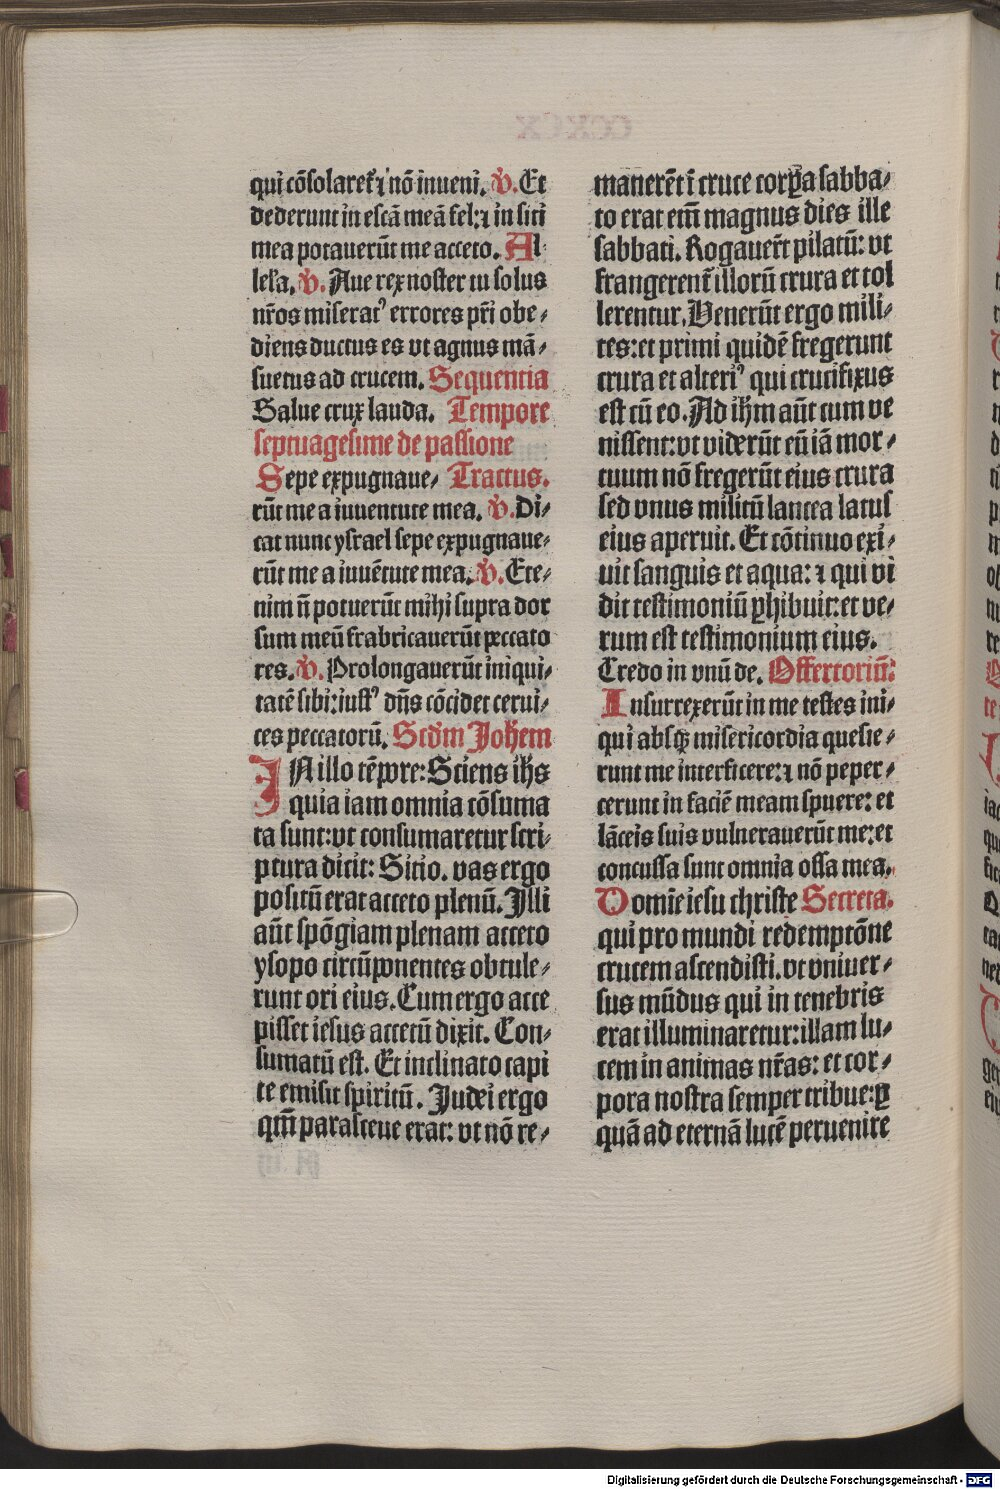 qui cōsolaret᷑ ⁊ nō inueni. V̉. Et
dederunt in escā meā fel: ⁊ in siti
mea potauerūt me aceto. Al-
lel'a. V̉. Aue rex noster tu solus
nr̄os miserat᷒ errores pr̄i obe-
diens ductus es vt agnus mā-
suetus ad crucem. Sequentia
Salue crux lauda. Tempore
septuagesime de passione
Sepe expugnaue- Tractus.
rūt me a iuuentute mea. V̉. Di-
cat nunc ysrael sepe expugnaue-
rūt me a iuuētute mea. V̉. Ete-
nim n̄ potuerūt mihi supra dor
sum meū frabricauerūt peccato
res. V̉. Prolongauerūt iniqui-
tatē sibi: iust᷒ dn̄s cōcidet cerui-
ces peccatorū. Scd̄m Joh̄em
IN illo tēpore: Sciens ih̄s
quia iam omnia cōsuma
ta sunt: vt consumaretur scri-
ptura dicit: Sitio. vas ergo
positū erat aceto plenū. Illi
aūt spōgiam plenam aceto
ysopo circūponentes obtule-
runt ori eius. Cum ergo acce
pisset iesus acetū dixit. Con-
sumatū est. Et inclinato capi
te emisit spiritū. Judei ergo
qm̄ parasceue erat: vt nō re-
manerēt ī cruce corꝑa sabba-
to erat em̄ magnus dies ille
sabbati. Rogauer̄t pilatū: vt
frangerent᷑ illorū crura et tol
lerentur. Venerūt ergo mili-
tes: et primi quidē fregerunt
crura et alteri᷒ qui crucifixus
est cū eo. Ad ih̄m aūt cum ve
nissent: vt viderūt eū iā mor-
tuum nō fregerūt eius crura
sed vnus militū lancea latus
eius aperuit. Et cōtinuo exi-
uit sanguis et aqua: ⁊ qui vi
dit testimoniū ꝑhibuit: et ve-
rum est testimonium eius.
Credo in vnū de. Offertoriū:
Insurrexerūt in me testes ini-
qui absqꝫ misericordia quesie-
runt me interficere: ⁊ nō peper-
cerunt in faciē meam spuere: et
lāceis suis vulnerauerūt me: et
concussa sunt omnia ossa mea.
Domīe iesu christe Secreta.
qui pro mundi redemptōne
crucem ascendisti. vt vniuer-
sus mūdus qui in tenebris
erat illuminaretur: illam lu-
cem in animas nr̄as: et cor-
pora nostra semper tribue: ꝑ
quā ad eternā lucē peruenire
Digitalisierung gefördert durch die Deutsche Forschungsgemeinschaft - DFG